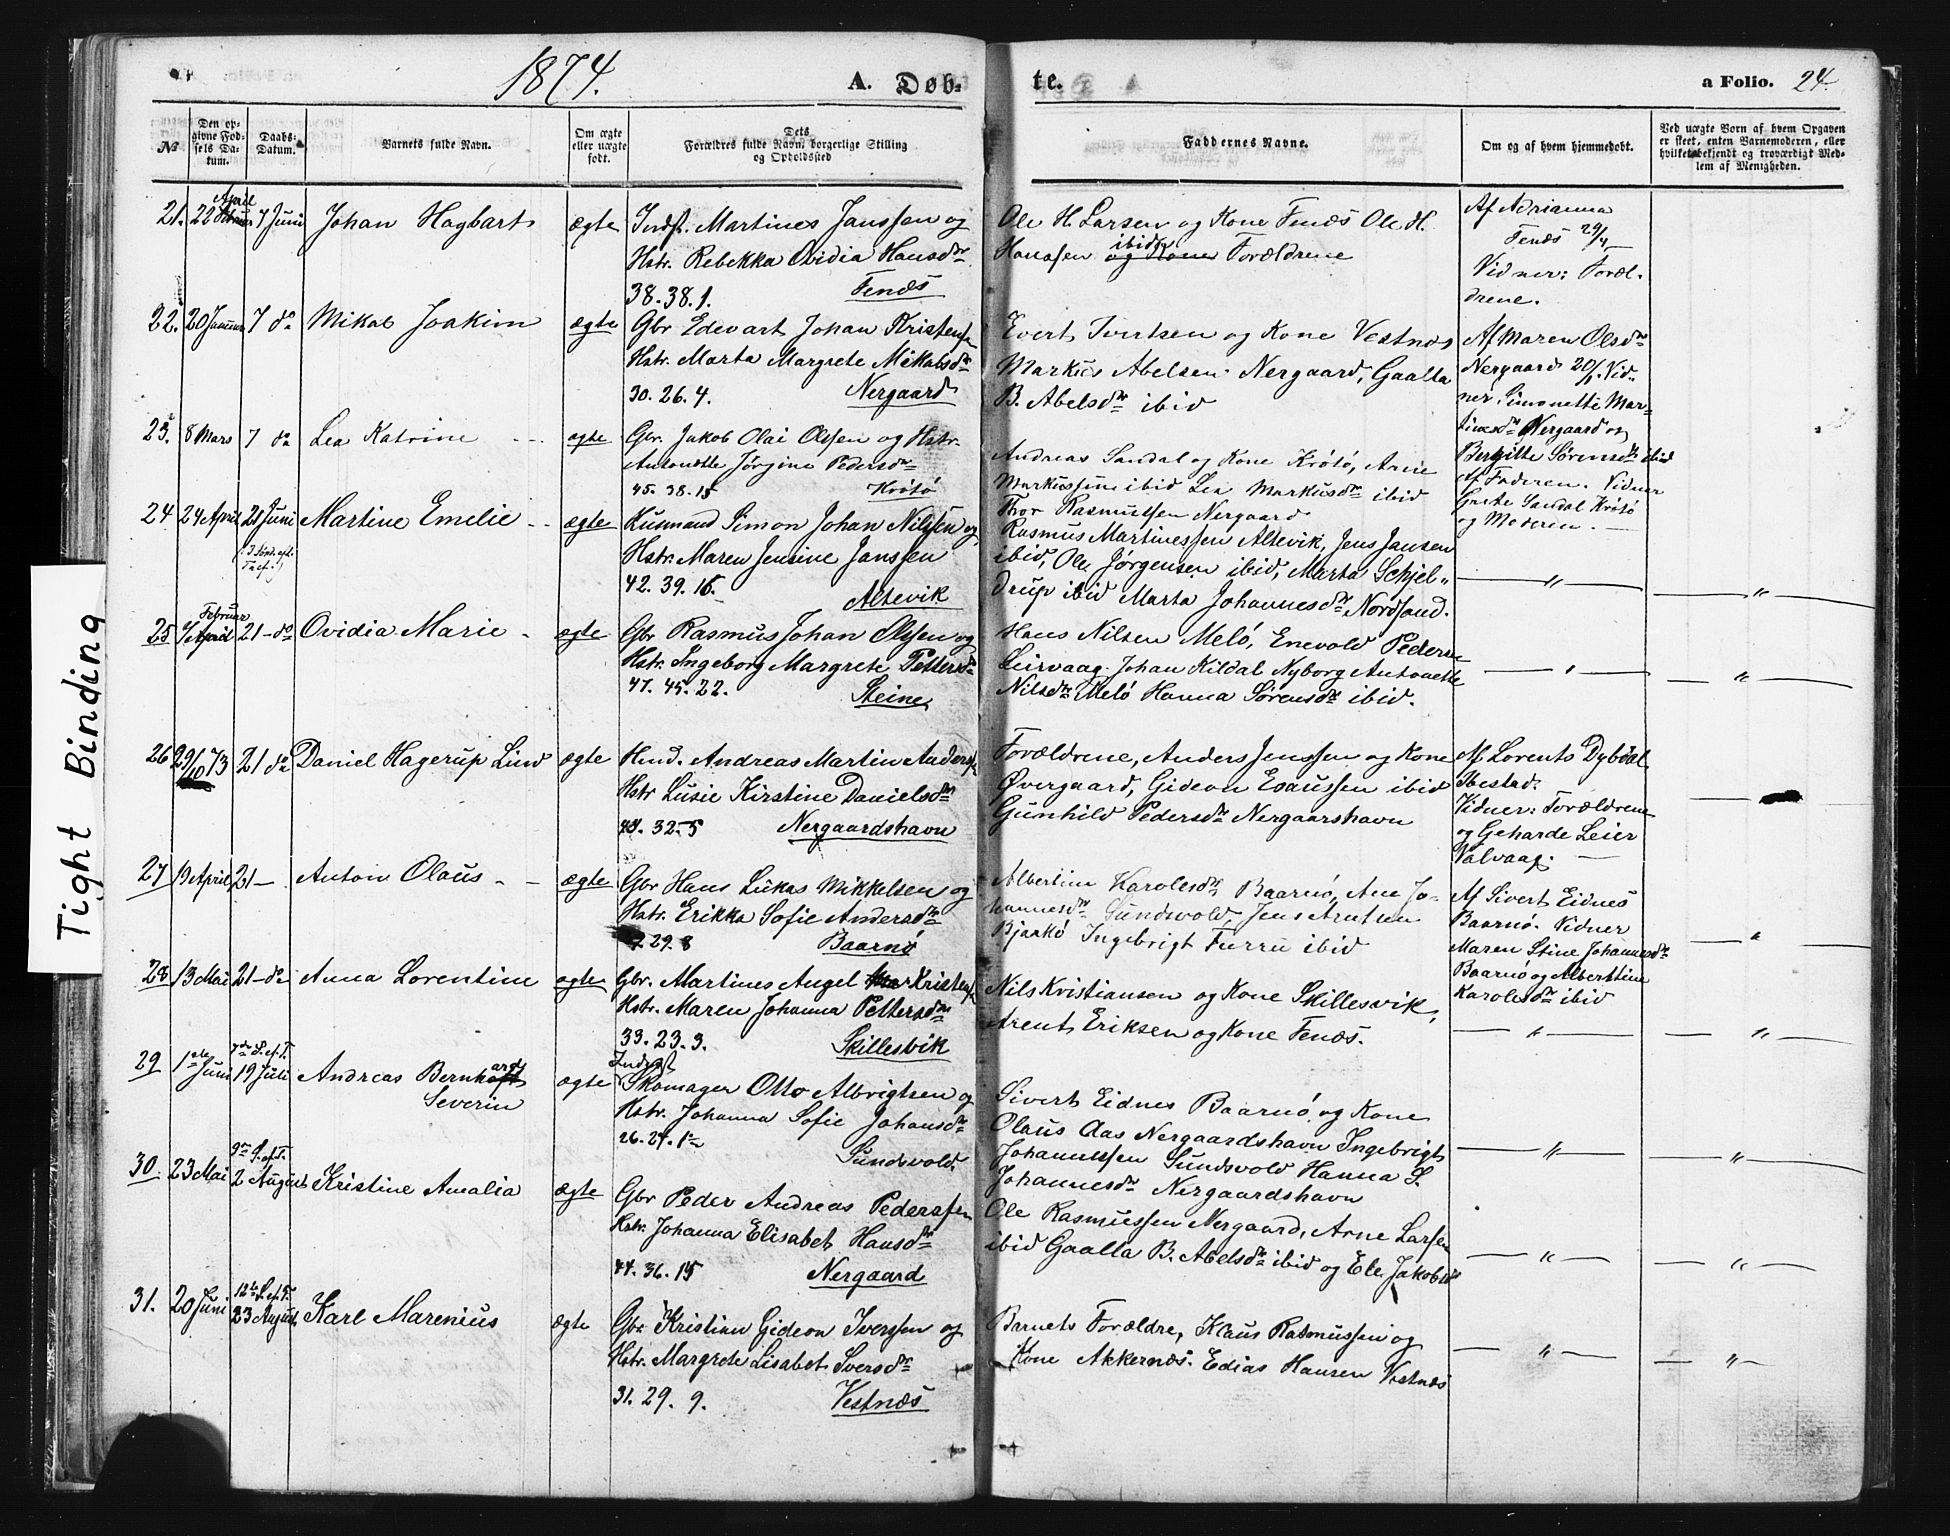 1874.
A. Døb-
te.
a Folio. 24.
№
Den op-
givne Fød-
sels Da-
tum.
Daabs-
Datum.
Barnets fulde Navn.
Om ægte
eller uægte
født.
Dets
Forældres fulde Navn, borgerlige Stilling
og Opholdssted
Faddernes Navne.
Om og af hvem hjemmedøbt.
Ved uægte Børn af hvem Opgaven
er skeet, enten Barnemoderen, eller
hvilket bekjendt og troværdigt Med-
lem af Menigheden.
Tight Binding
21. 22 April 7 Juni Johan Hagbart ægte Indst. Martines Janssen og
Hstr. Rebekka Ovidia Hansdtr
38. 38. 1. Fenæs
Ole H. Larsen og Kone Fenæs Ole H.
Hanssen ibid og Kone Forældrene
Af Adrianna
Fenæs 29/4
Vidner: Foræl-
drene.
22. 20 Januar 7 do Mikal Joakim ægte Gbr Edevart Johan Kristensen
Hstr. Marta Margrete Mikalsdtr
30. 26. 4. Nergaard
Evert Ivertsen og Kone Vestnæs
Markus Abelsen Nergaard, Gaalta
B. Abelsdtr ibid
Af Maren Olsdtr
Nergaard 20/1. Vid-
ner Simonette Mar-
tinesdtr Nergaard og
Bergitte Sørensdtr ibid
23. 8 Mars 7 do Lea Katrine ægte Gbr. Jakob Olai Olssen og Hstr.
Antonette Jørgine Pedersdtr
45. 38. 15 Krøtø
Andreas Sandal og Kone Krøtø, Arne
Markussen ibid Lea Markusdtr ibid
Thor Rasmussen Nergaard
Af Faderen. Vidner
Grete Sandal Krøtø
og Moderen.
24 24 April 21 Juni Martine Emelie ægte Husmand Simon Johan Nilssen og
Hstr. Maren Jensine Janssen
42. 39. 16. Altevik
Rasmus Martinessen Altevik, Jens Jansen
ibid, Ole Jørgensen ibid, Marta Schjel-
drup ibid Marta Johannesdtr Nordsand.
25 Februar April 21 - do Ovidia Marie ægte Gbr Rasmus Johan Olssen og
Hstr. Ingeborg Margrete Pettersdtr
47. 45. 22. Steine
Hans Nilsen Melø, Enevold Pedersen
Leirvaag. Johan Kildal Nyborg Antonette
Nilsdtr Melø Hanna Sørensdtr ibid.
26 29/10 73 21 do Daniel Hagerup Lind ægte Hmd. Andreas Martin Anderssen
Hstr Lusie Kirstine Danielsdtr
43. 32. 5 Nergaardshavn
Forældrene, Anders Jenssen og Kone
Øvergaard, Gideon Esaussen ibid
Gunhild Pedersdtr Nergaarshavn
Af Lorents Dybdal
Ibestad.
Vidner: Forældrene
og Geharde Leier
Valvaag.
27 13 April 21 - Anton Olaus ægte Gbr Hans Lukas Mikkelsen og
Hstr. Erikka Sofie Andersdtr
29. 8 Baarnø
Albertine Karolesdtr Baarnø, Ane Jo-
hannesdtr Sundsvold, Jens Arntsen
Bjarkø Ingebrigt Furru ibid
Af Sivert Eidnes
Baarnø. Vidner
Maren Stine Johannesdtr
Baarnø og Alberttine
Karolesdtr ibid
28 13 Mai 21 - do Anna Lorentine ægte Gbr. Martines Angel Kristensen
Hstr. Maren Johanna Pettersdtr
33. 23. 3. Skillesvik
Nils Kristiansen og Kone Skillesvik,
Arent Eriksen og Kone Fenæs.
29 1ste Juni 7de S. e. T. 19 Juli Andreas Bernhard
Severin ægte Inderst
Skomager Otto Albrigtsen og
Hstr. Johanna Sofie Johansdtr
26. 27. 1 Sundsvold
Sivert Eidnes Baarnø og Kone
Olaus Aas Nergaardshavn Ingebrigt
Johannssen Sundsvold Hanna S.
Johannesdtr Nergaardshavn
30. 23 Mai 9de S. e. T. 2 August Kristine Amalia ægte Gbr Peder Andreas Pederssen
Hstr. Johanna Elisabet Hansdtr
44. 36. 15 Nergaard
Ole Rasmussen Nergaard, Arne Larsen
ibid Gaalla B. Abelsdtr ibid og Ele Jakobsdtr
31. 20 Juni 12te S. e. T. 23 August Karl Marenius ægte Gbr Kristian Gideon Iverssen og
Hstr. Margrete Lisabet Iversdtr
31. 29. 9. Vestnæs
Barnets Forældre, Klaus Rasmussen og
Kone Akkernæs. Edias Hansen Vestnæs